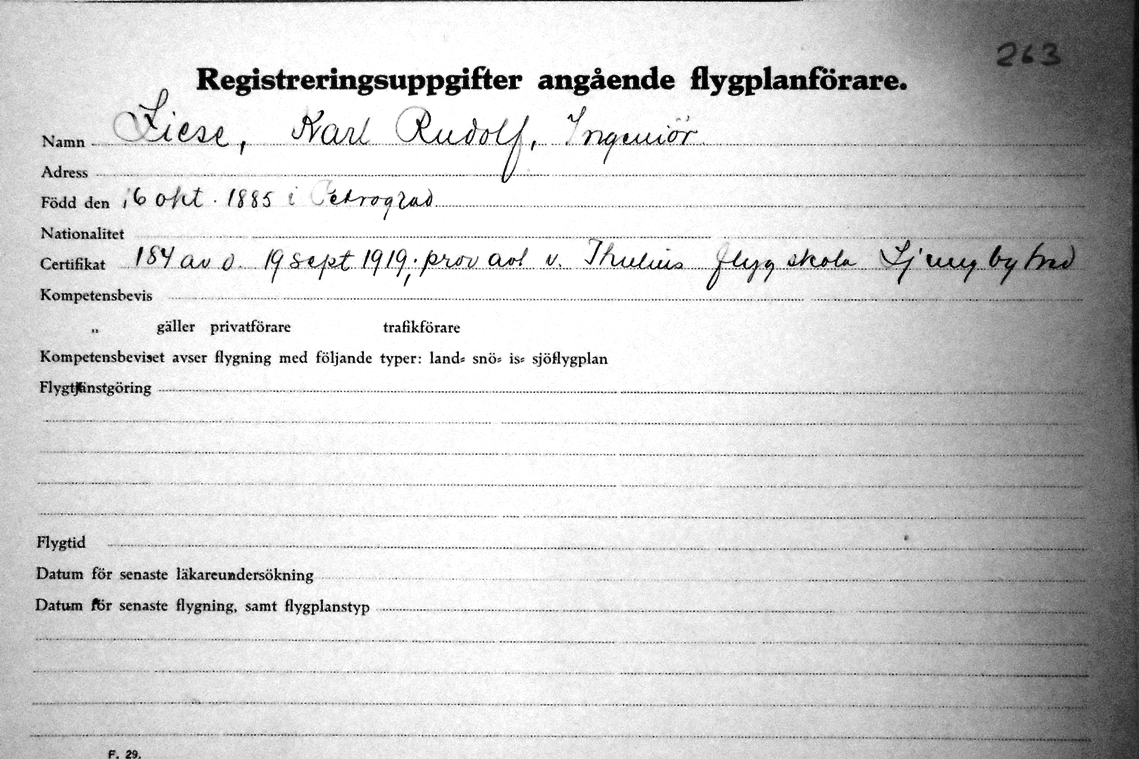 263
Registreringsuppgifter angående flygplanförare.
Namn Ziese, Karl Rudolf, Ingeniör
Adress
Född den 16 okt. 1885 i Petrograd
Nationalitet
Certifikat 184 av d. 19 sept 1919; prov avl v. Thulins flygskola Ljungbyhed
Kompetensbevis
„ gäller privatförare trafikförare
Kompetensbeviset avser flygning med följande typer: land- snö- is- sjöflygplan
Flygtjänstgöring
Flygtid
Datum för senaste läkareundersökning
Datum för senaste flygning, samt flygplanstyp
F. 29.